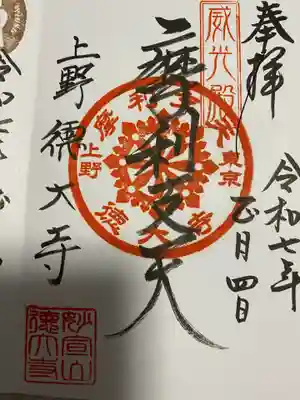 奉拝
令和七年
正月四日
威光殿
二摩利支天
東京
上野
徳大寺
上野 徳大寺
妙宣山
徳大寺
令和七年